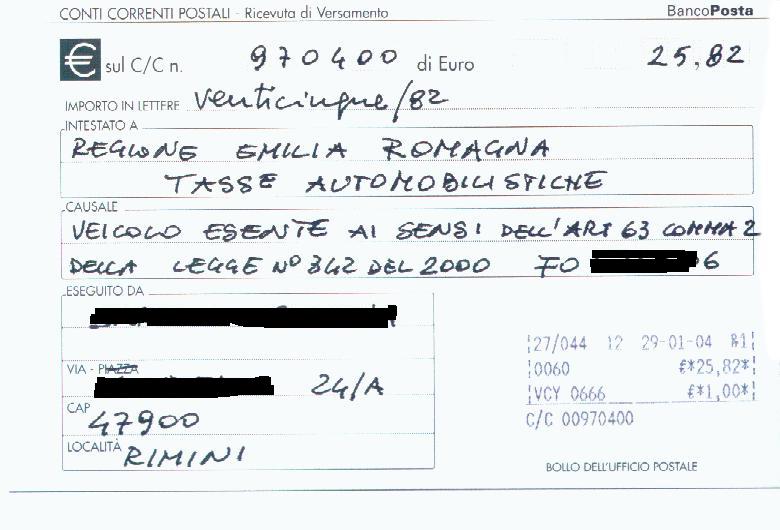 CONTI CORRENTI POSTALI - Ricevuta di Versamento BancoPosta
€ sul C/C n. 970400 di Euro 25,82
IMPORTO IN LETTERE venticinque/82
INTESTATO A
REGIONE EMILIA ROMAGNA
TASSE AUTOMOBILISTICHE
CAUSALE
VEICOLO ESENTE AI SENSI DELL'ART 63 COMMA 2
DELLA LEGGE N° 342 DEL 2000 FO 6
ESEGUITO DA
VIA - PIAZZA
24/A
CAP
47900
LOCALITÀ
RIMINI
27/044 12 29-01-04 R1
0060 €*25,82*
VCY 0666 €*1,00*
C/C 00970400
BOLLO DELL'UFFICIO POSTALE